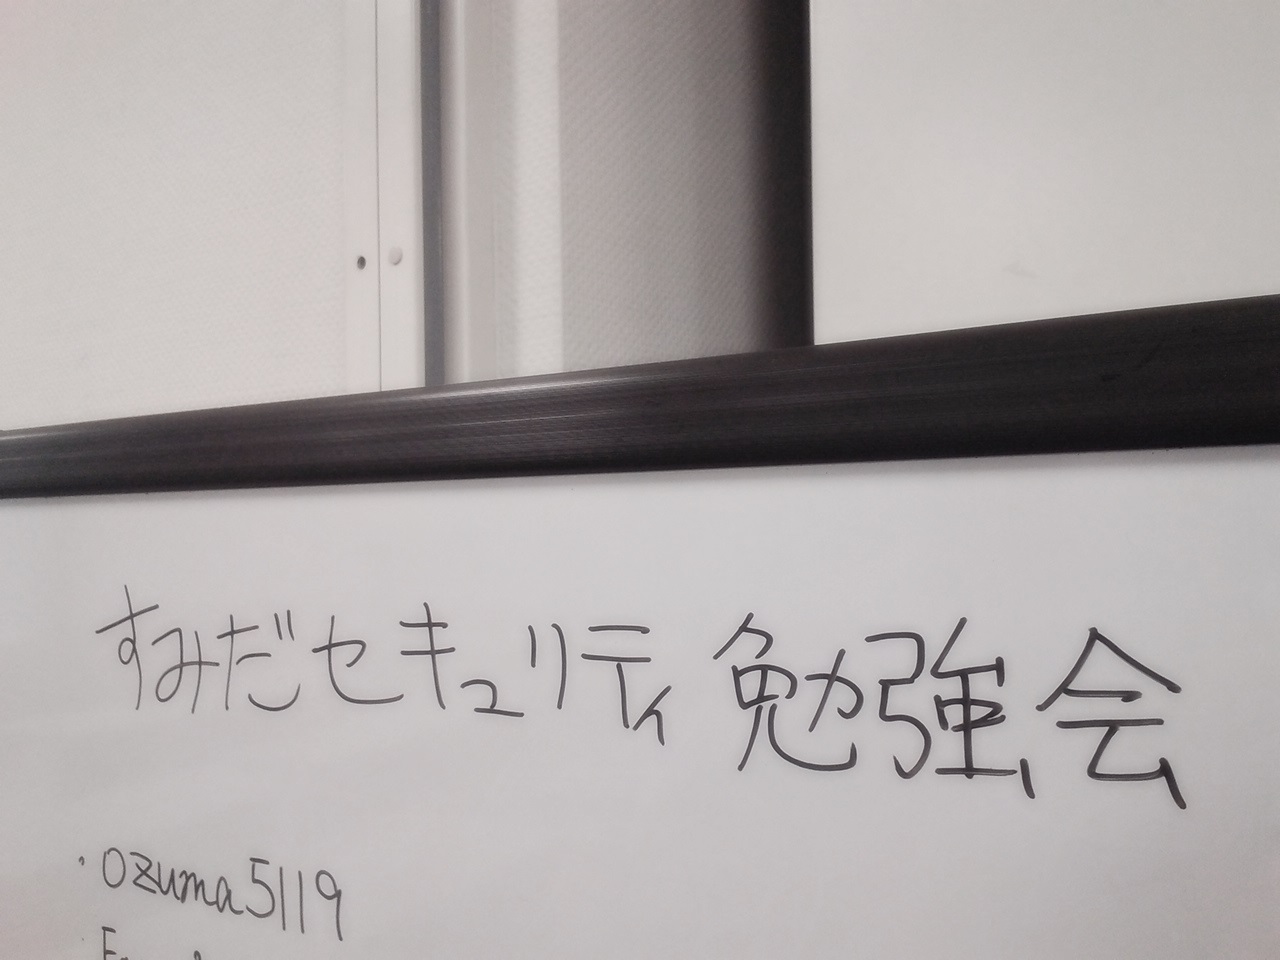 すみだセキュリティ勉強会
・ozuma5119